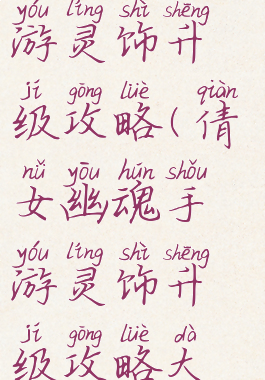 yóu líng shì shēng
游灵饰升
jí gōng lüè qiàn
级攻略(倩
nǚ yōu hún shǒu
女幽魂手
yóu líng shì shēng
游灵饰升
jí gōng lüè dà
级攻略大